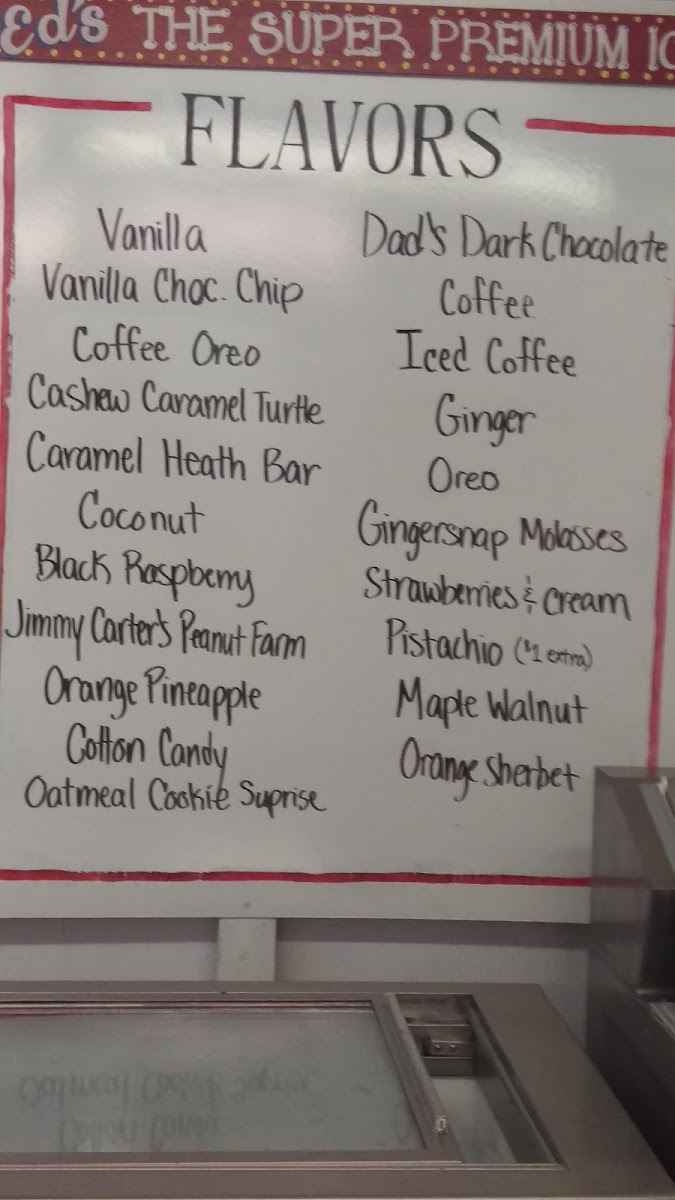 Ed's THE SUPER PREMIUM IC
FLAVORS
Vanilla
Vanilla Choc. Chip
Coffee Oreo
Cashew Caramel Turtle
Caramel Heath Bar
Coconut
Black Raspberry
Jimmy Carter's Peanut Farm
Orange Pineapple
Cotton Candy
Oatmeal Cookie Suprise
Dad's Dark Chocolate
Coffee
Iced Coffee
Ginger
Oreo
Gingersnap Molasses
Strawberries & Cream
Pistachio ($1 extra)
Maple Walnut
Orange Sherbet